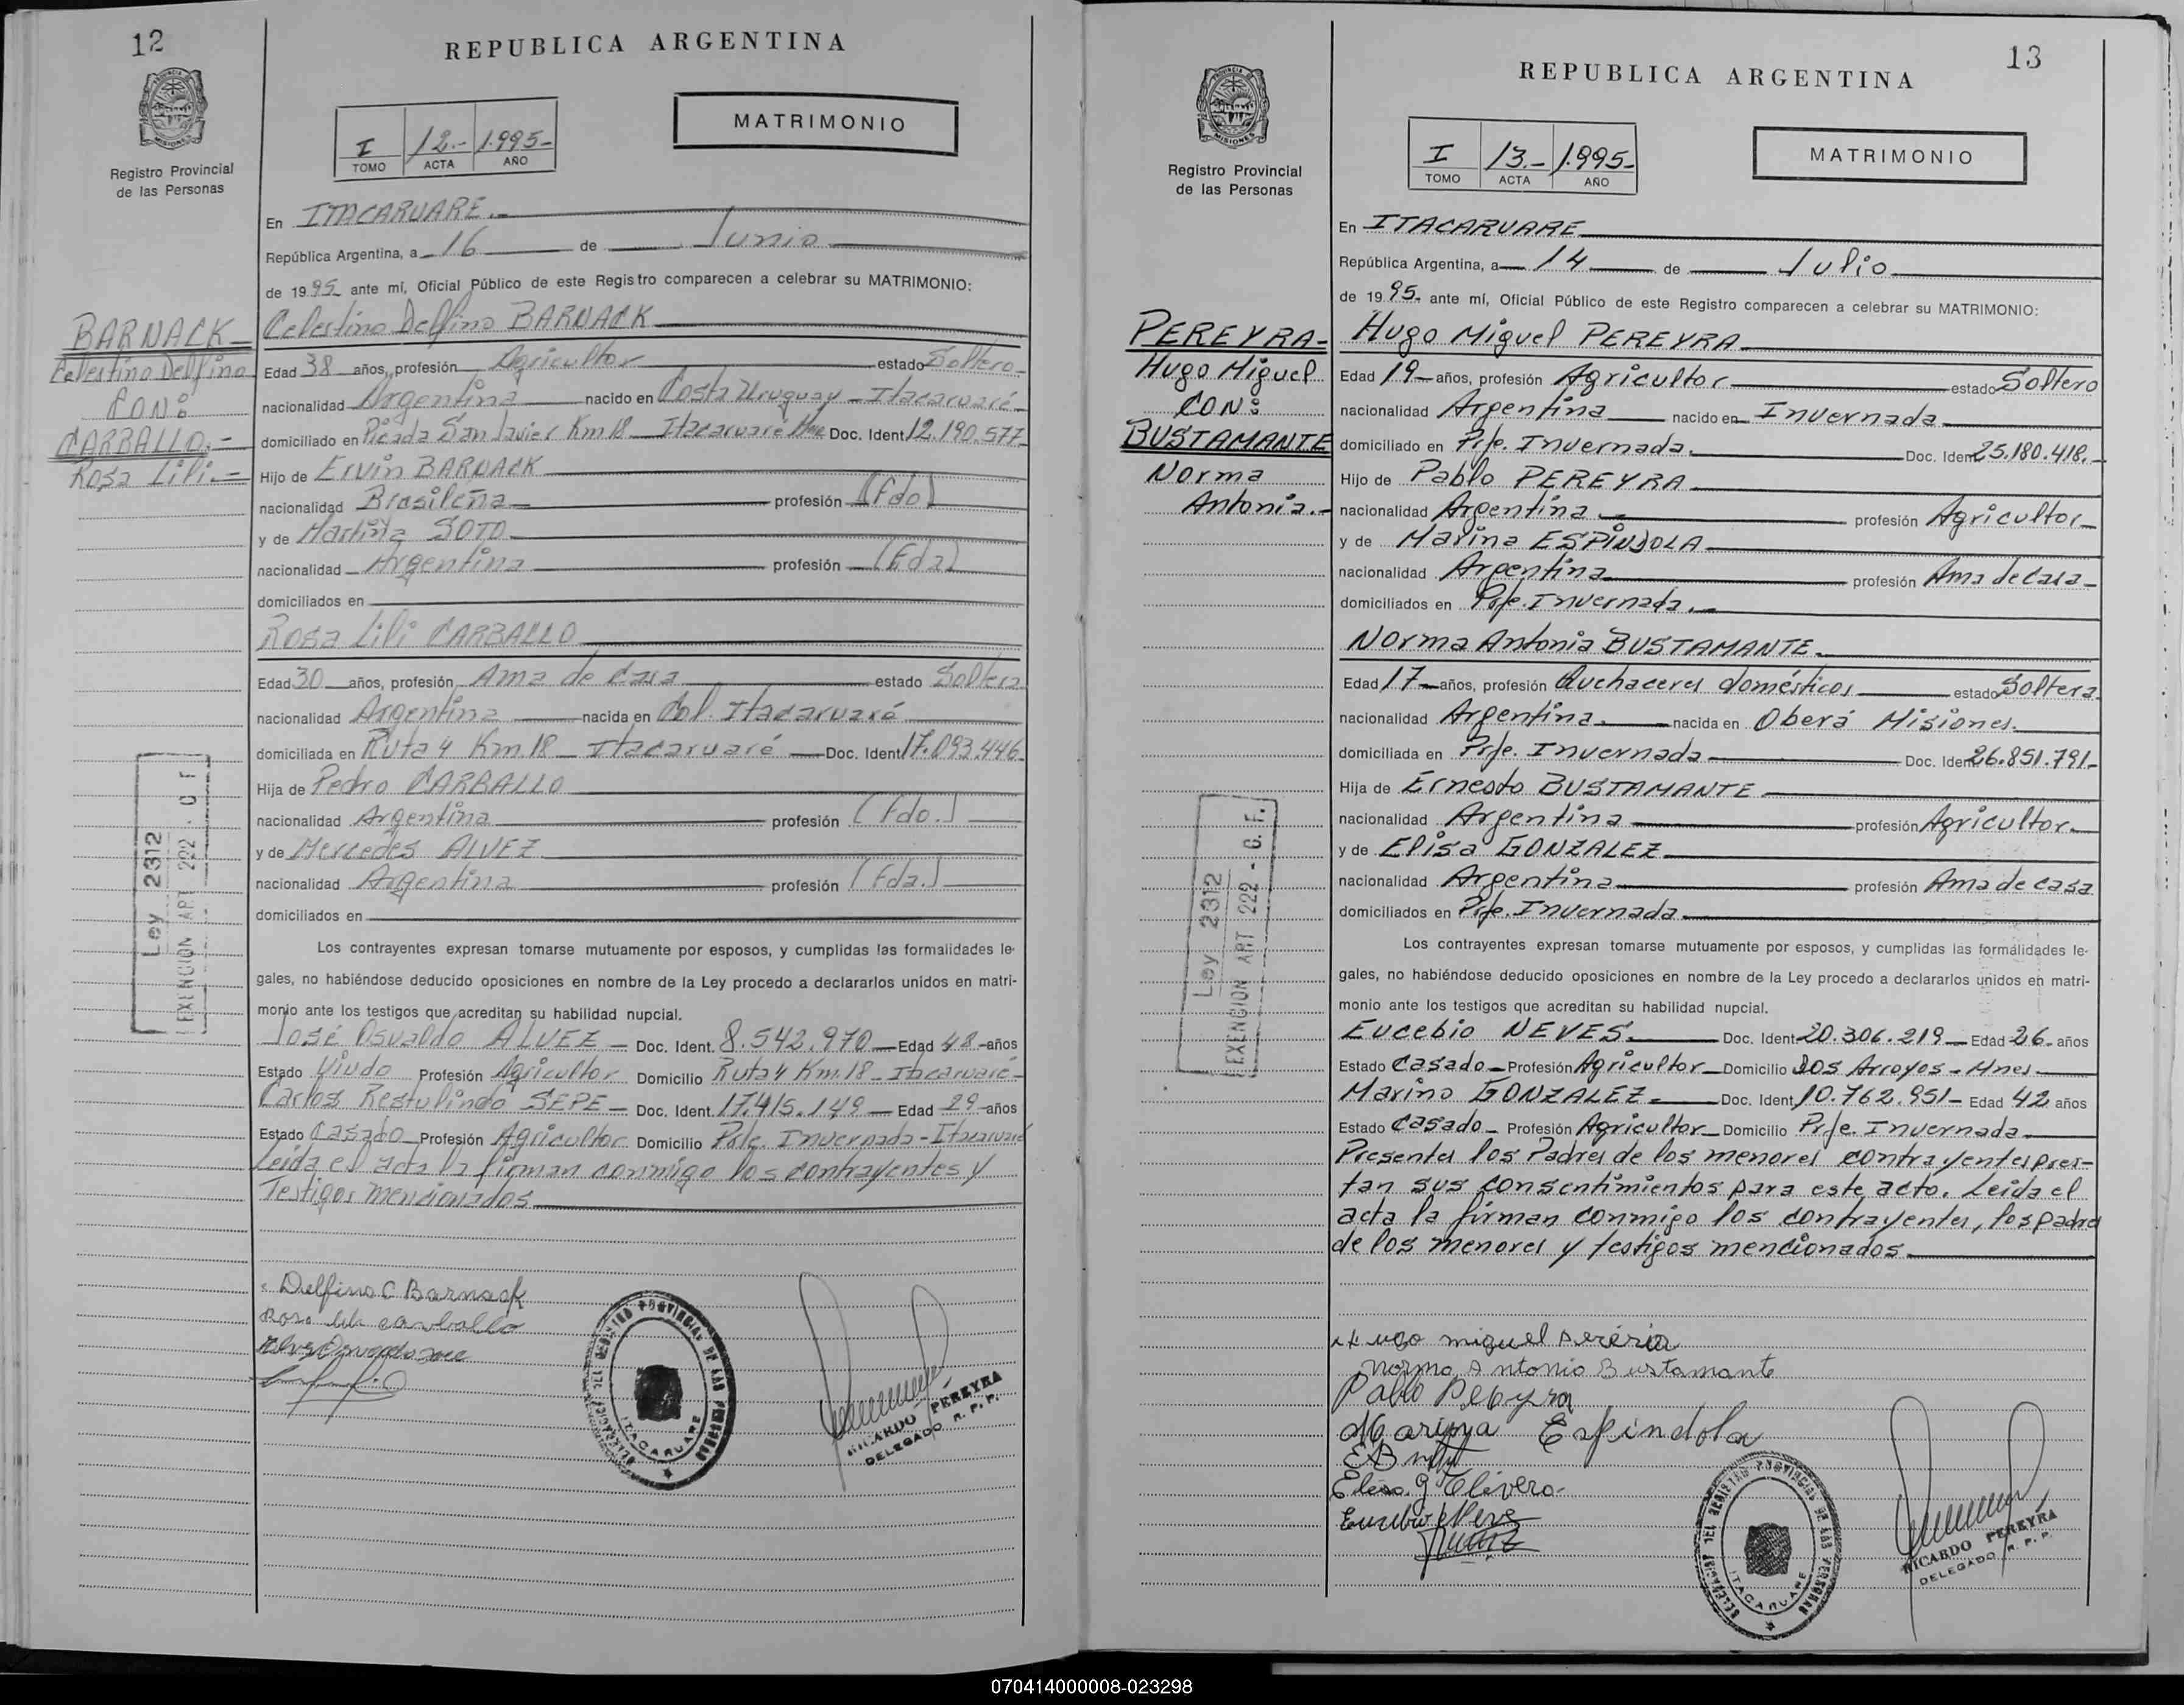 12
REPUBLICA ARGENTINA
Registro Provincial
de las Personas
I 12.- 1.995-
TOMO ACTA AÑO
MATRIMONIO
En ITACARUARE.-
República Argentina, a 16 de Junio
de 1995- ante mí, Oficial Público de este Registro comparecen a celebrar su MATRIMONIO:
BARNACK-
Celestino Delfino
CON:
CARBALLO.-
Rosa Lili.-
Celestino Delfino BARNACK
Edad 38 años, profesión Agricultor estado Soltero-
nacionalidad Argentina nacido en Costa Uruguay - Itacaruaré-
domiciliado en Picada San Javier Km 18 Itacaruaré Mnes Doc. Ident 12.190.577
Hijo de Ervin BARNACK
nacionalidad Brasileña profesión (Fdo)
y de Martina SOTO
nacionalidad Argentina profesión (Fda)
domiciliados en
Rosa Lili CARBALLO
Edad 30 años, profesión Ama de Casa estado Soltera
nacionalidad Argentina nacida en Col. Itacaruaré
domiciliada en Ruta 4 Km.18 - Itacaruaré Doc. Ident 17.093.446
Hija de Pedro CARBALLO
nacionalidad Argentina profesión (Fdo.)
y de Mercedes ALVEZ
nacionalidad Argentina profesión (Fda.)
domiciliados en
Ley 2312
EXENCION ART 222 . C F
Los contrayentes expresan tomarse mutuamente por esposos, y cumplidas las formalidades le-
gales, no habiéndose deducido oposiciones en nombre de la Ley procedo a declararlos unidos en matri-
monio ante los testigos que acreditan su habilidad nupcial.
José Osvaldo ALVEZ - Doc. Ident. 8.542.970 - Edad 48 años
Estado Viudo Profesión Agricultor Domicilio Ruta 4 Km.18 - Itacaruaré-
Carlos Restulindo SEPE - Doc. Ident. 17.415.149 - Edad 29 años
Estado Casado Profesión Agricultor Domicilio Pje. Invernada - Itacaruaré
Leída el acta la firman conmigo los contrayentes y
Testigos mencionados
Delfino C Barnack
Rosa lili carballo
DELEGACION DEL REGISTRO PROVINCIAL DE LAS PERSONAS
ITACARUARE
RICARDO PEREYRA
DELEGADO R. P. P.
13
REPUBLICA ARGENTINA
Registro Provincial
de las Personas
I 13.- 1.995-
TOMO ACTA AÑO
MATRIMONIO
En ITACARUARE
República Argentina, a 14 de Julio
de 1995- ante mí, Oficial Público de este Registro comparecen a celebrar su MATRIMONIO:
PEREYRA-
Hugo Miguel
CON:
BUSTAMANTE
Norma
Antonia.-
Hugo Miguel PEREYRA
Edad 19 años, profesión Agricultor estado Soltero
nacionalidad Argentina nacido en Invernada
domiciliado en Pje. Invernada. Doc. Ident 25.180.418.
Hijo de Pablo PEREYRA
nacionalidad Argentina profesión Agricultor
y de Marina ESPINDOLA
nacionalidad Argentina profesión Ama de Casa-
domiciliados en Pje. Invernada.-
Norma Antonia BUSTAMANTE
Edad 17 años, profesión Quehaceres domésticos estado Soltera
nacionalidad Argentina. nacida en Oberá Misiones.
domiciliada en Pje. Invernada Doc. Ident 26.851.791-
Hija de Ernesto BUSTAMANTE
nacionalidad Argentina profesión Agricultor
y de Elisa GONZALEZ
nacionalidad Argentina profesión Ama de casa
domiciliados en Pje. Invernada
Ley 2312
EXENCION ART 222 - C. F.
Los contrayentes expresan tomarse mutuamente por esposos, y cumplidas las formalidades le-
gales, no habiéndose deducido oposiciones en nombre de la Ley procedo a declararlos unidos en matri-
monio ante los testigos que acreditan su habilidad nupcial.
Eucebio NEVES Doc. Ident 20.306.219 - Edad 26 años
Estado Casado - Profesión Agricultor - Domicilio Dos Arroyos - Mnes
Marino GONZALEZ Doc. Ident 10.762.951 - Edad 42 años
Estado Casado - Profesión Agricultor - Domicilio Pje. Invernada
Presentes los Padres de los menores contrayentes pres-
tan sus consentimientos para este acto. Leída el
acta la firman conmigo los contrayentes, los padres
de los menores y testigos mencionados
Hugo miguel pereria
Norma Antonia Bustamante
Pablo Pereyra
Marina Espindola
Elisa g Olivera
DELEGACION DEL REGISTRO PROVINCIAL DE LAS PERSONAS
ITACARUARE
RICARDO PEREYRA
DELEGADO R. P. P.
070414000008-023298